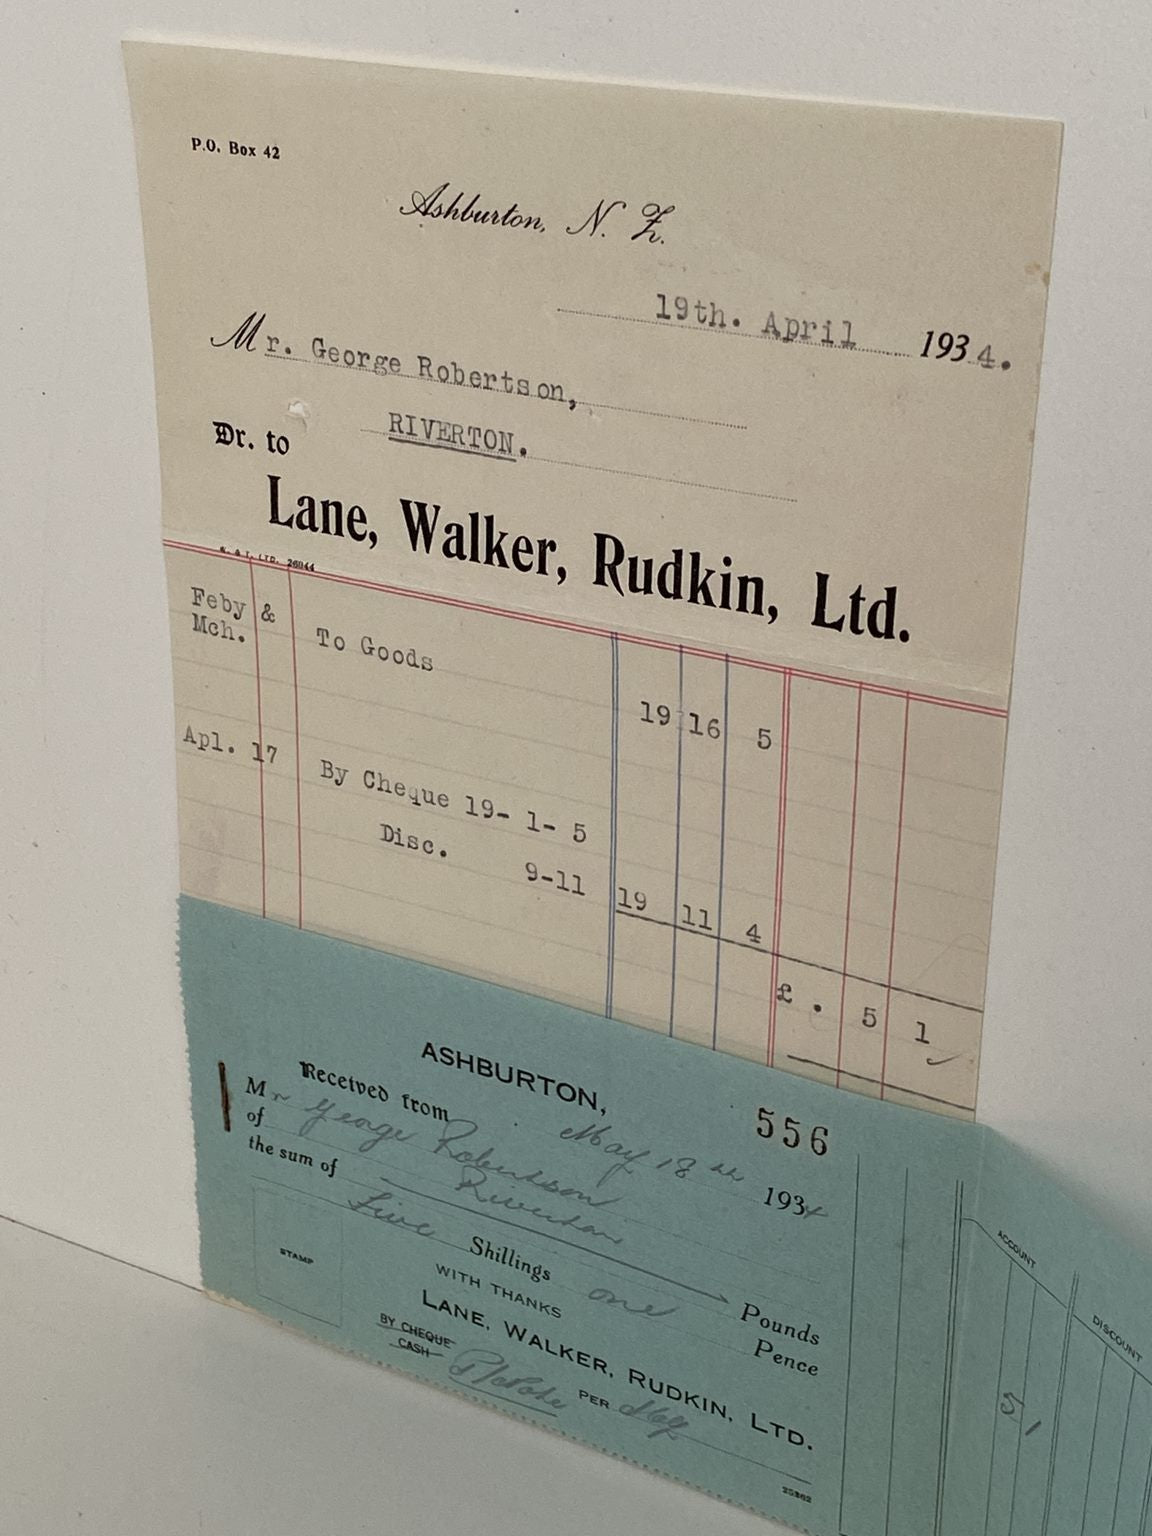 P.O. Box 42
Ashburton, N. Z.
19th. April 1934.
Mr. George Robertson,
RIVERTON.
Dr. to
Lane, Walker, Rudkin, Ltd.
LTD. 26944
Feby &
Mch. To Goods 19 16 5
Apl. 17 By Cheque 19- 1- 5
Disc. 9-11 19 11 4
£ . 5 1
ASHBURTON,
556
May 18th 1934
Received from
Mr George Robertson
of Riverton
the sum of Pounds
Five Shillings one Pence
STAMP
WITH THANKS
LANE, WALKER, RUDKIN, LTD.
BY CHEQUE
CASH
PER
25362
ACCOUNT
DISCOUNT
5 1